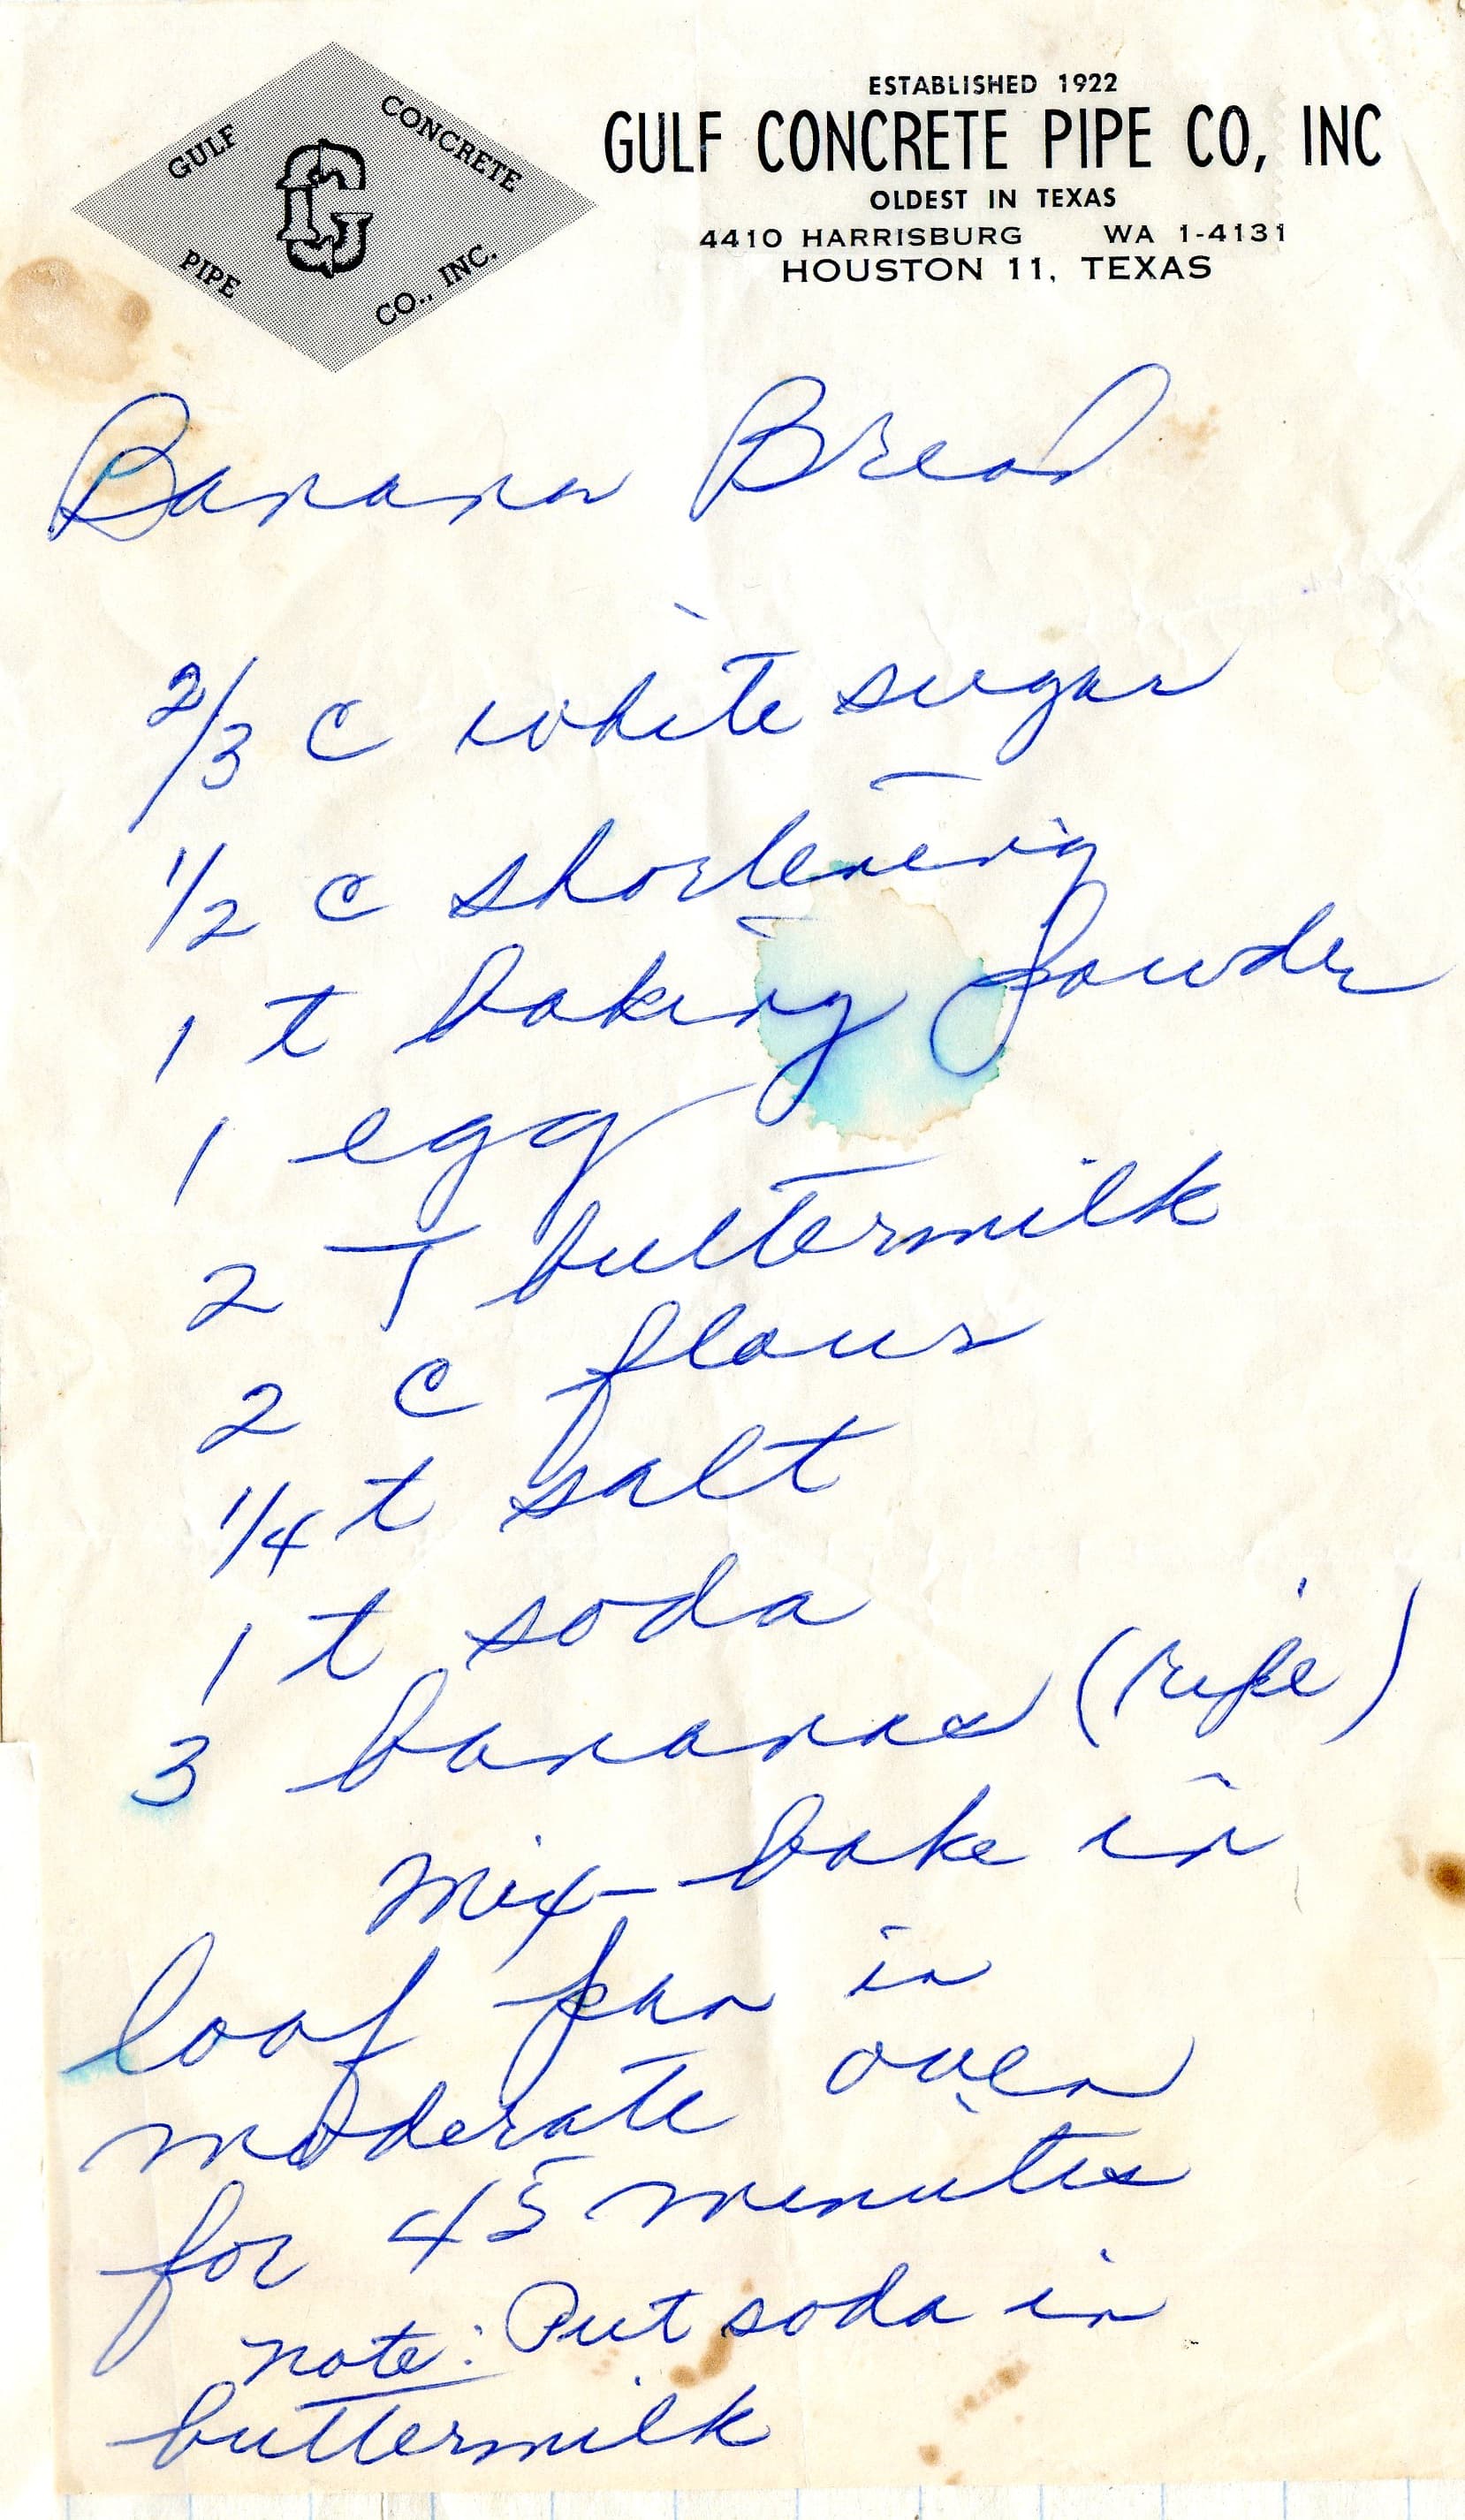 GULF CONCRETE
PIPE CO., INC.
ESTABLISHED 1922
GULF CONCRETE PIPE CO, INC
OLDEST IN TEXAS
4410 HARRISBURG WA 1-4131
HOUSTON 11, TEXAS
Banana Bread
2/3 c white sugar
1/2 c shortening
1 t baking powder
1 egg
2 T buttermilk
2 c flour
1/4 t salt
1 t soda
3 bananas (ripe)
Mix - bake in
loaf pan in
moderate oven
for 45 minutes
note: Put soda in
buttermilk